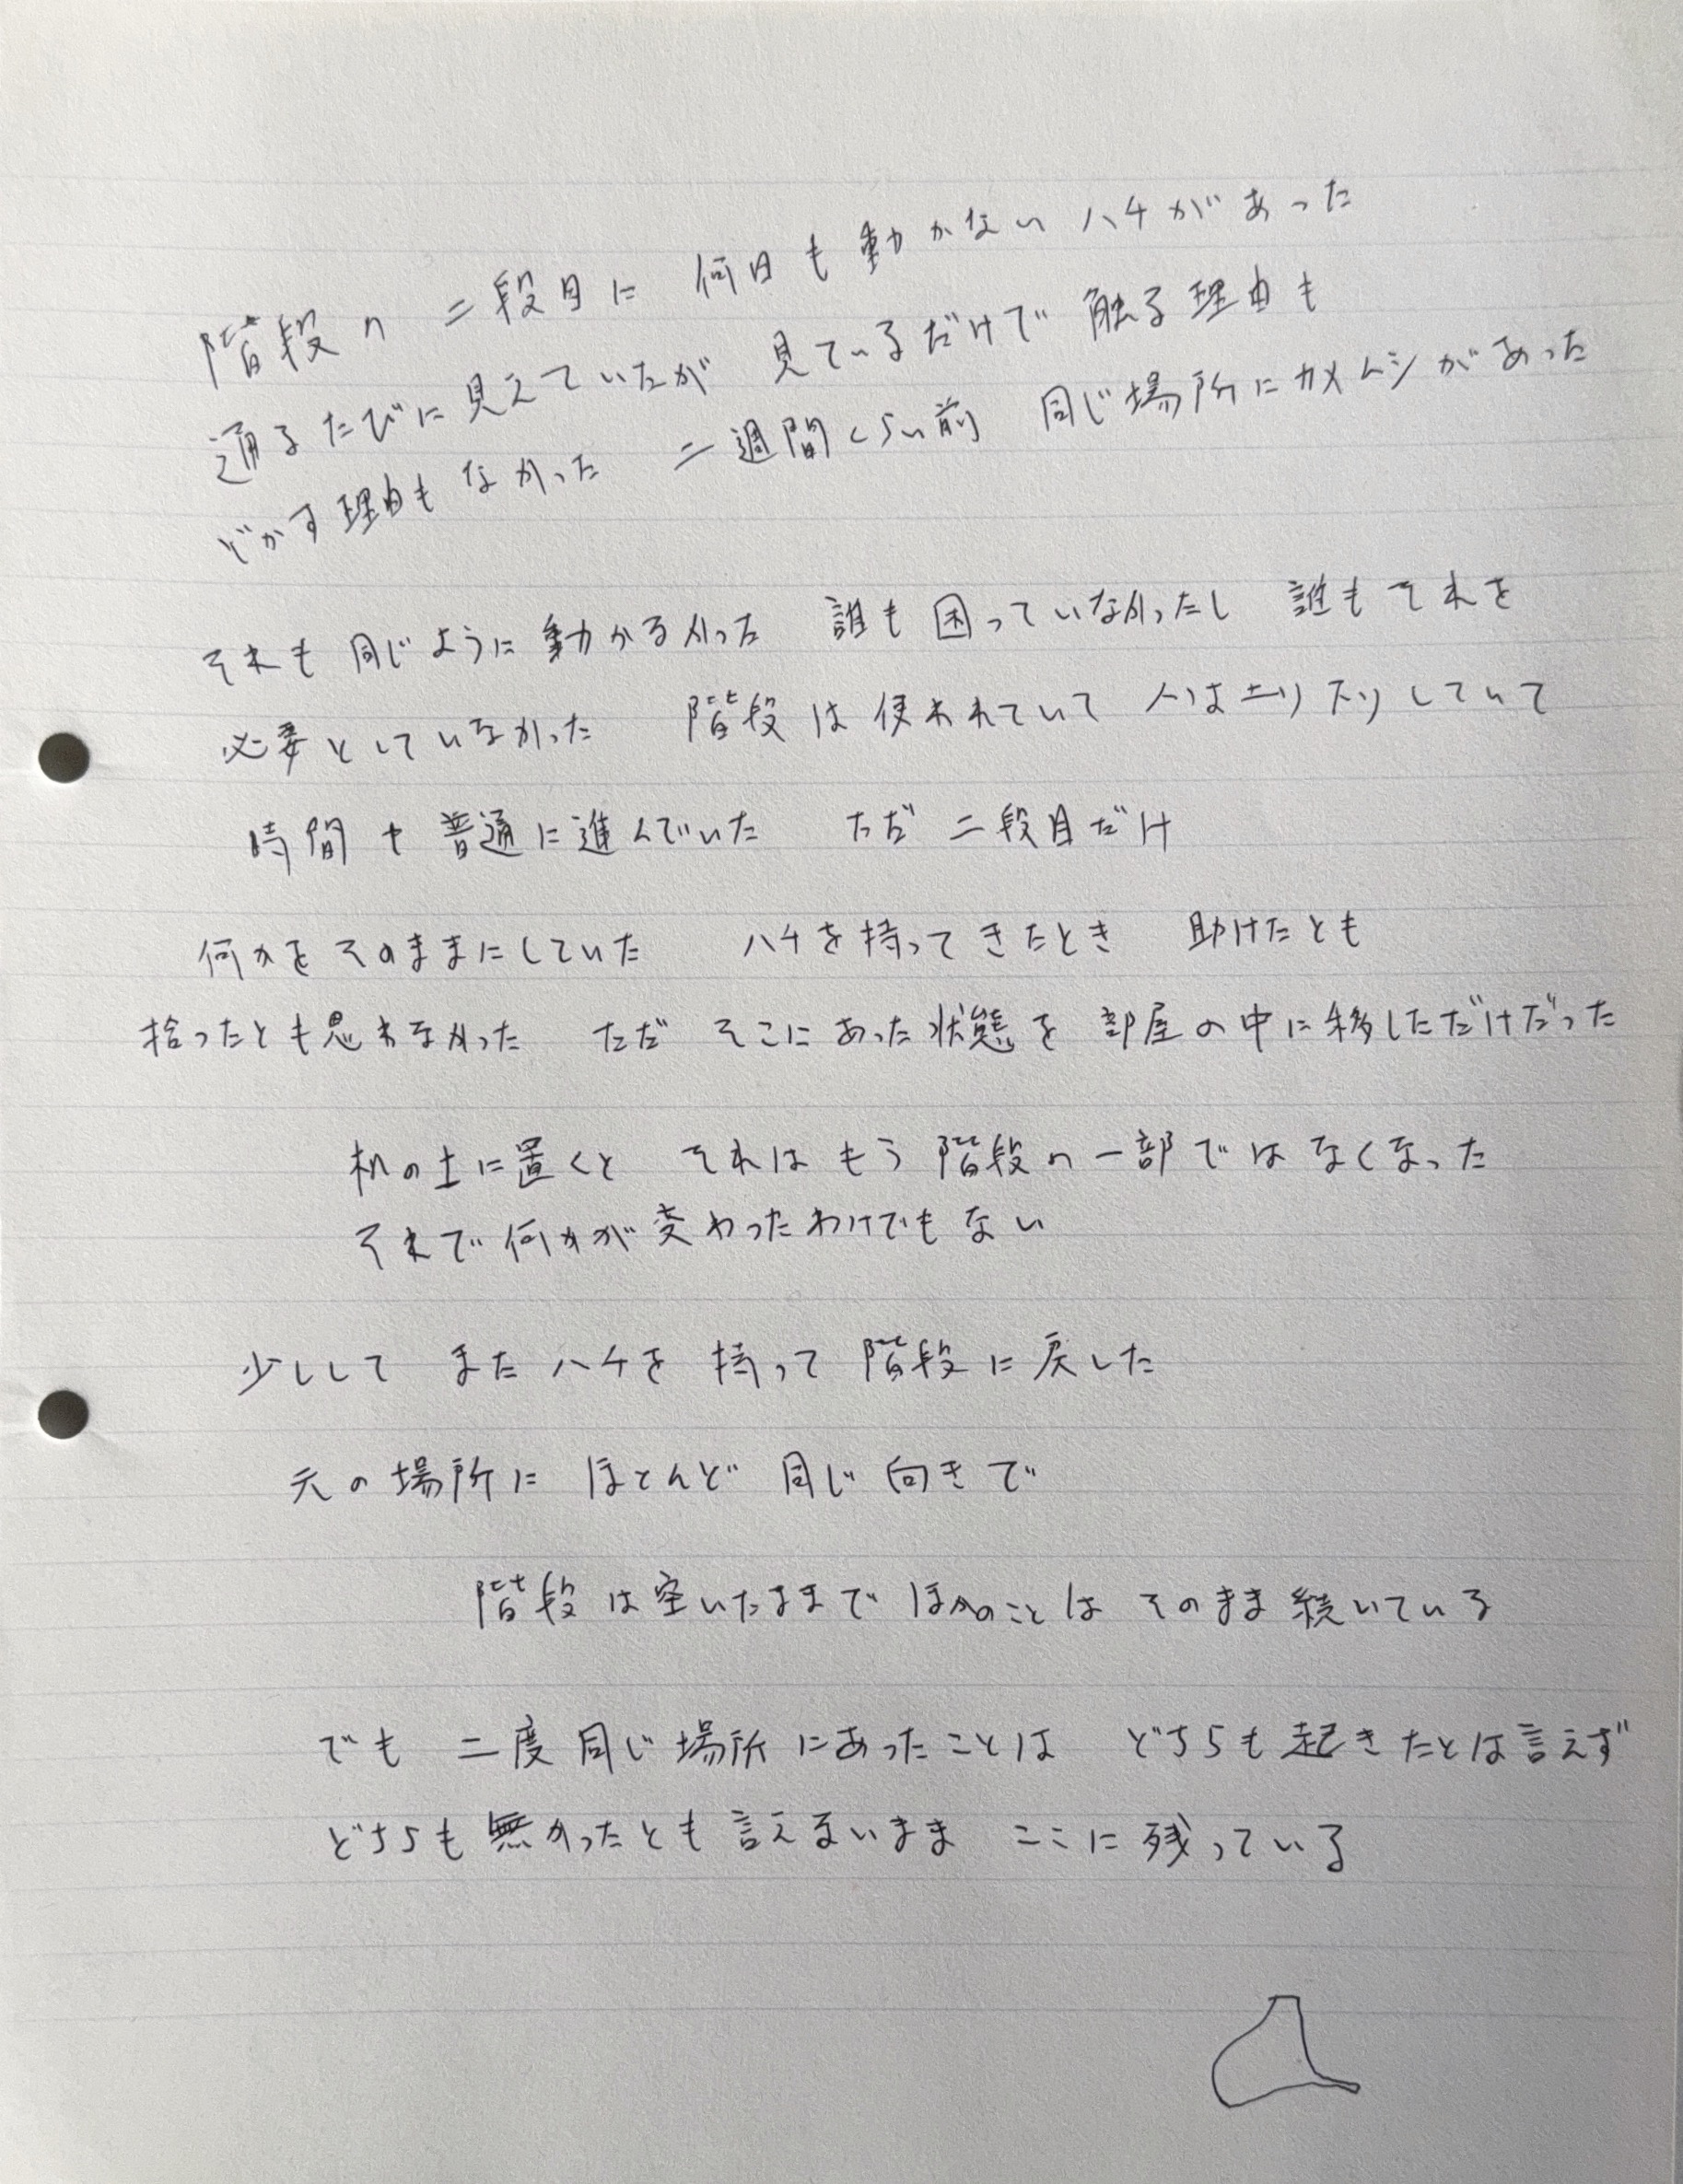 階段の 二段目に 何日も動かない ハチがあった
通るたびに見えていたが 見ているだけで 触る理由も
どかす理由もなかった 二週間くらい前 同じ場所にカメムシがあった
それも 同じように動かなかった 誰も困っていなかったし 誰もそれを
必要としていなかった 階段は使われていて 人は上り下りしていて
時間も普通に進んでいた ただ 二段目だけ
何かをそのままにしていた ハチを持ってきたとき 助けたとも
拾ったとも思わなかった ただ そこにあった状態を 部屋の中に移しただけだった
机の上に置くと それはもう 階段の一部ではなくなった
それで何かが変わったわけでもない
少しして またハチを 持って 階段に戻した
元の場所に ほとんど 同じ向きで
階段は空いたままで ほかのことは そのまま続いている
でも 二度同じ場所にあったことは どちらも起きたとは言えず
どちらも無かったとも言えないまま ここに残っている